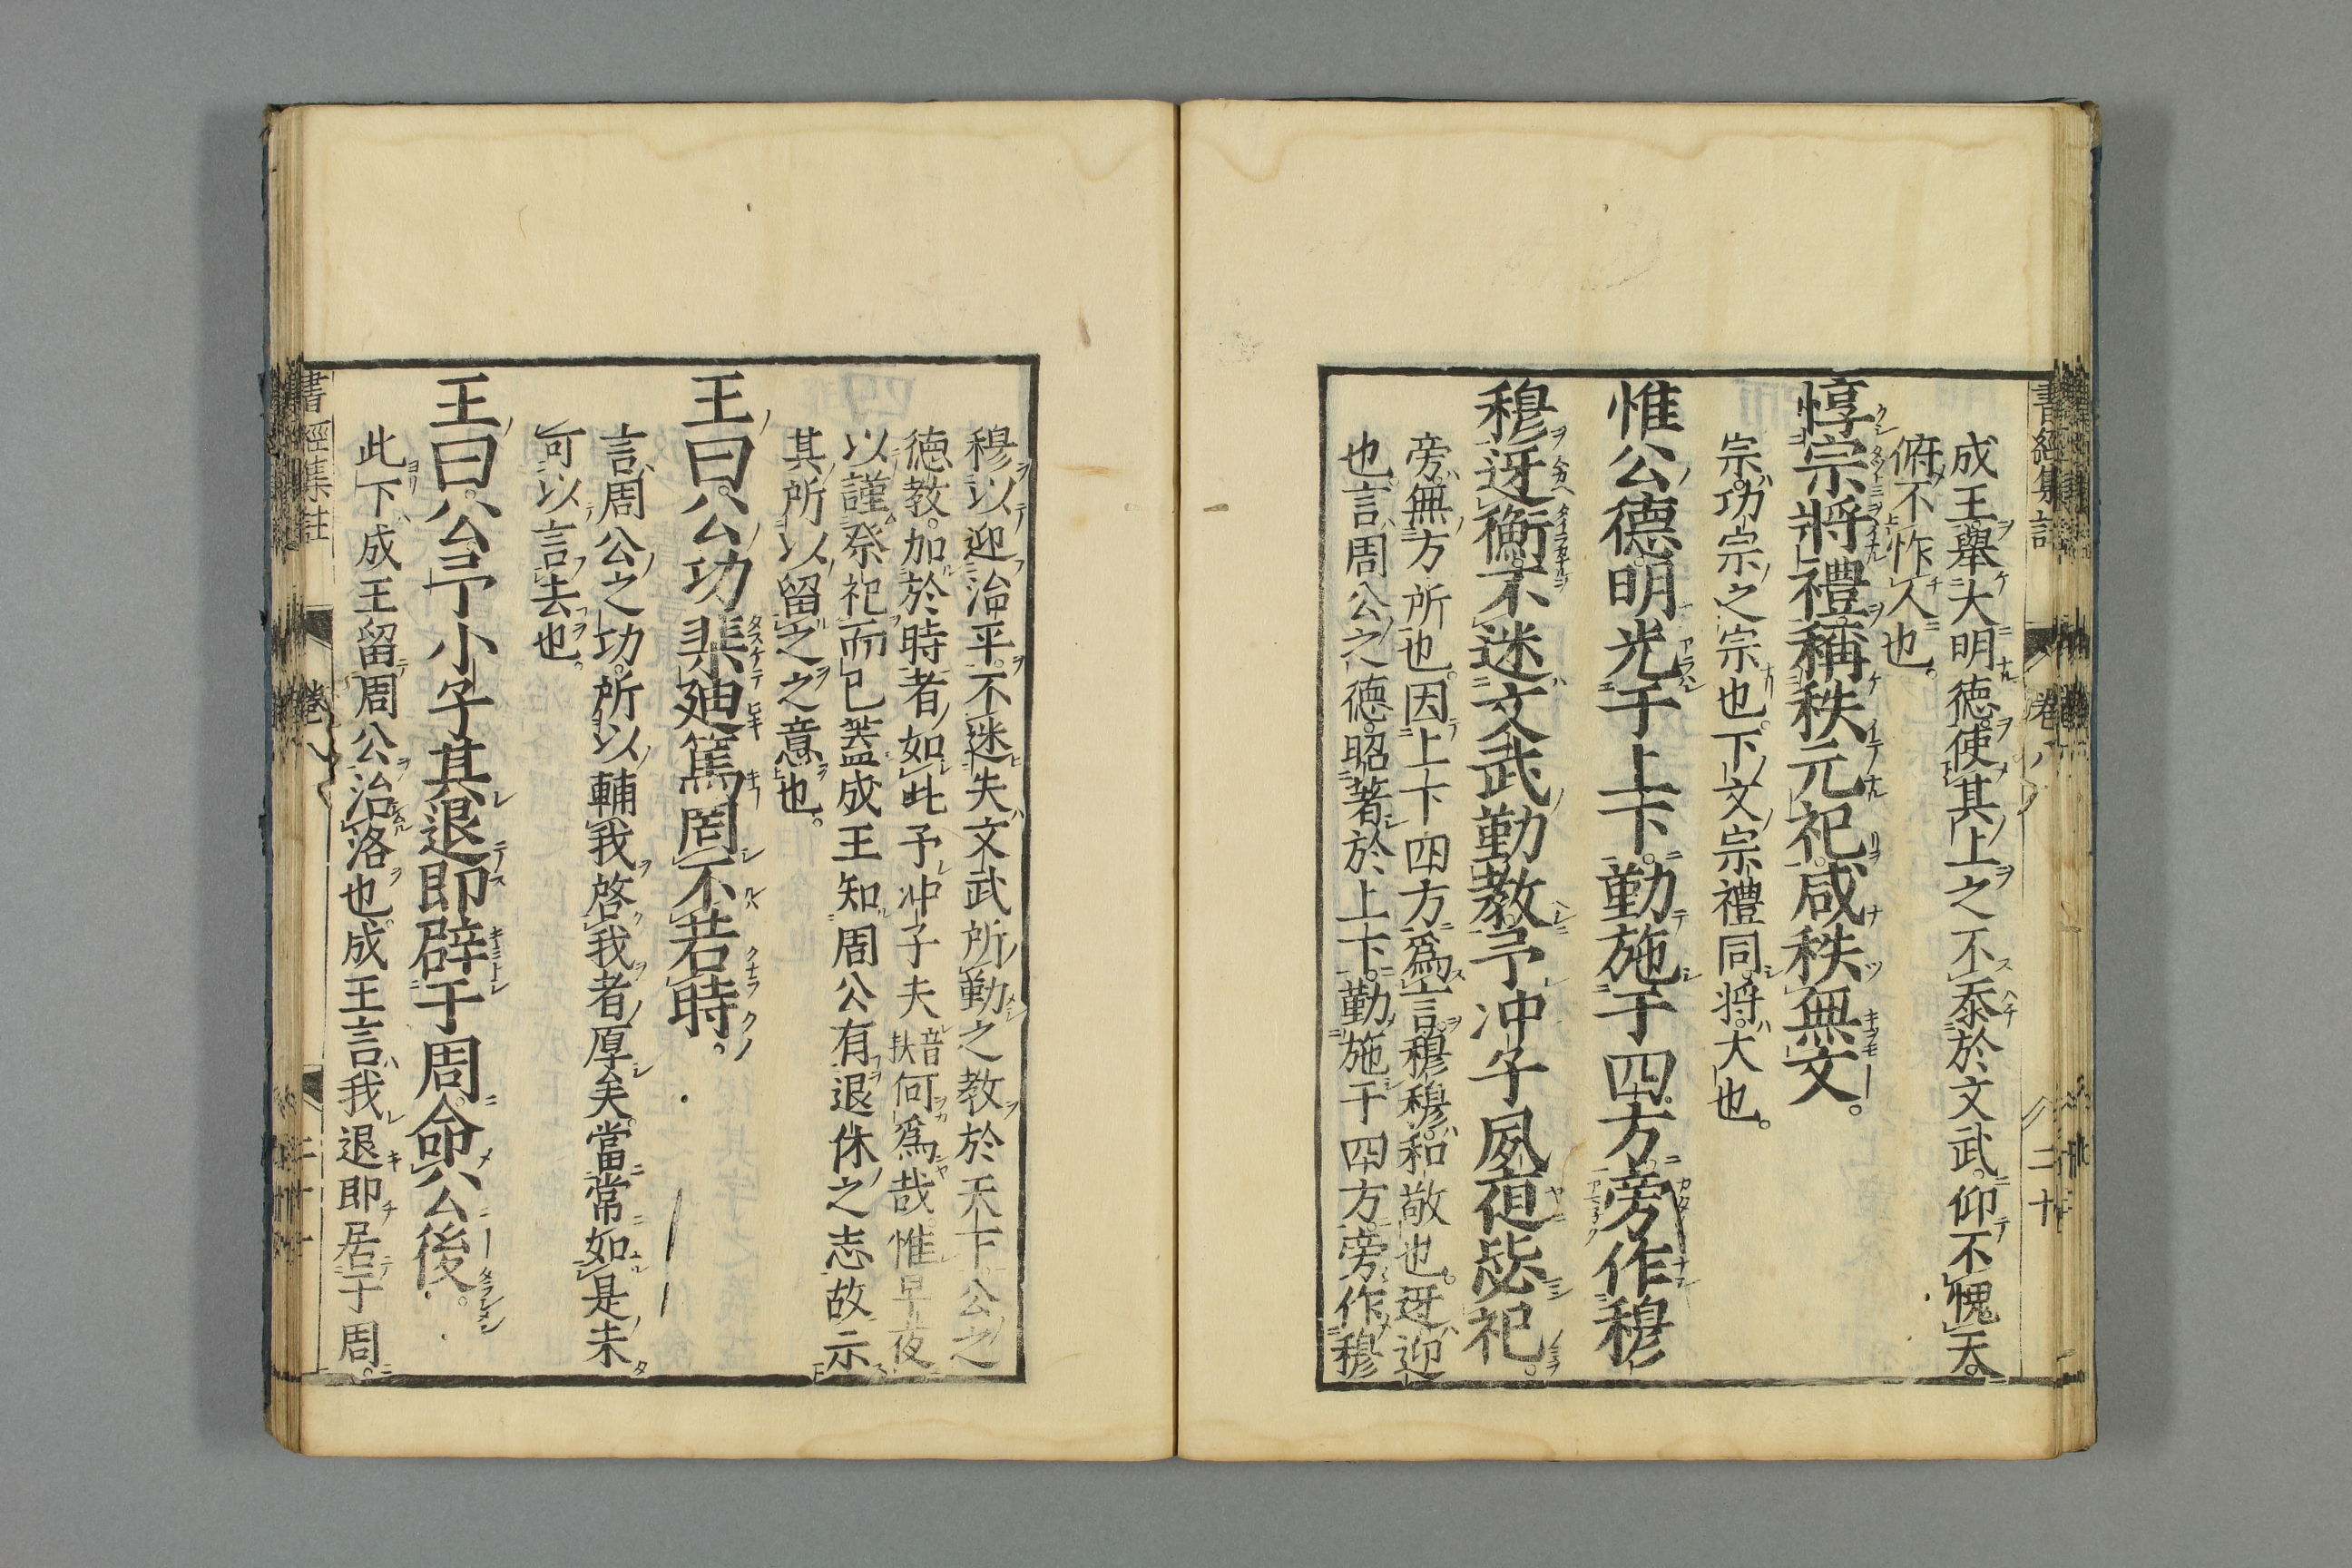 書經集註 卷八 二十
成王擧大明德。使其上之不忝於文武。仰不愧天。
俯不怍人也。
惇宗將禮。稱秩元祀。咸秩無文。
宗。功宗之宗也。下文宗禮同。將。大也。
惟公德。明光于上下。勤施于四方。旁作穆
穆迓衡。不迷文武勤教。予冲子夙夜毖祀。
旁。無方所也。因上下四方爲言。穆穆。和敬也。迓。迎
也。言周公之德。昭著於上下。勤施于四方。旁作穆
穆以迎治平。不迷失文武所勤之教於天下。公之
德教。加於時者如此。予冲子夫音扶何爲哉。惟早夜
以謹祭祀而已。蓋成王知周公有退休之志。故示
其所以留之之意也。
王曰。公功棐迪篤。罔不若時。
言周公之功。所以輔我啓我者厚矣。當常如是。未
可以言去也。
王曰。公。予小子其退即辟于周。命公後。
此下成王留周公治洛也。成王言我退即居于周。
書經集註 卷八 二十一